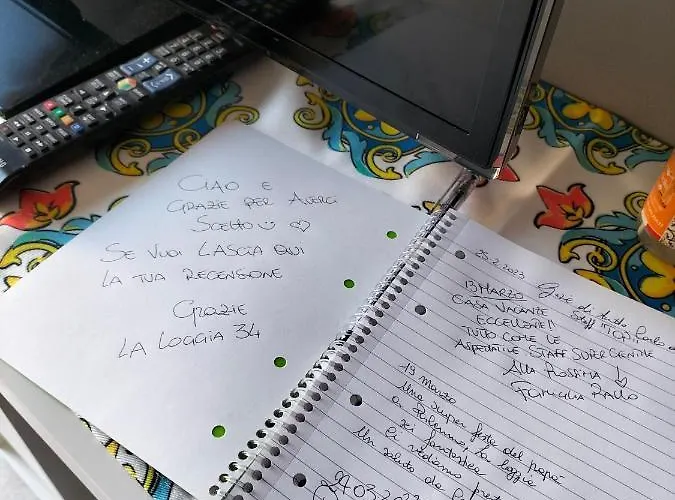 CIAO E
GRAZIE PER AVERCI
SCELTO
SE VUOI LASCIA QUI
LA TUA RECENSIONE
GRAZIE
LA LOGGIA 34
25.2.2023
Grazie di tutto
Staff "TOP"
13 MARZO
CASA VACANZE
ECCELLENTE!!
TUTTO COME LE
ASPETTATIVE STAFF SUPER GENTILE
ALLA PROSSIMA
FAMIGLIA RALLO
19 marzo
Una super festa del papà
a Palermo, la loggia
è fantastica
Ci vediamo
Un saluto da